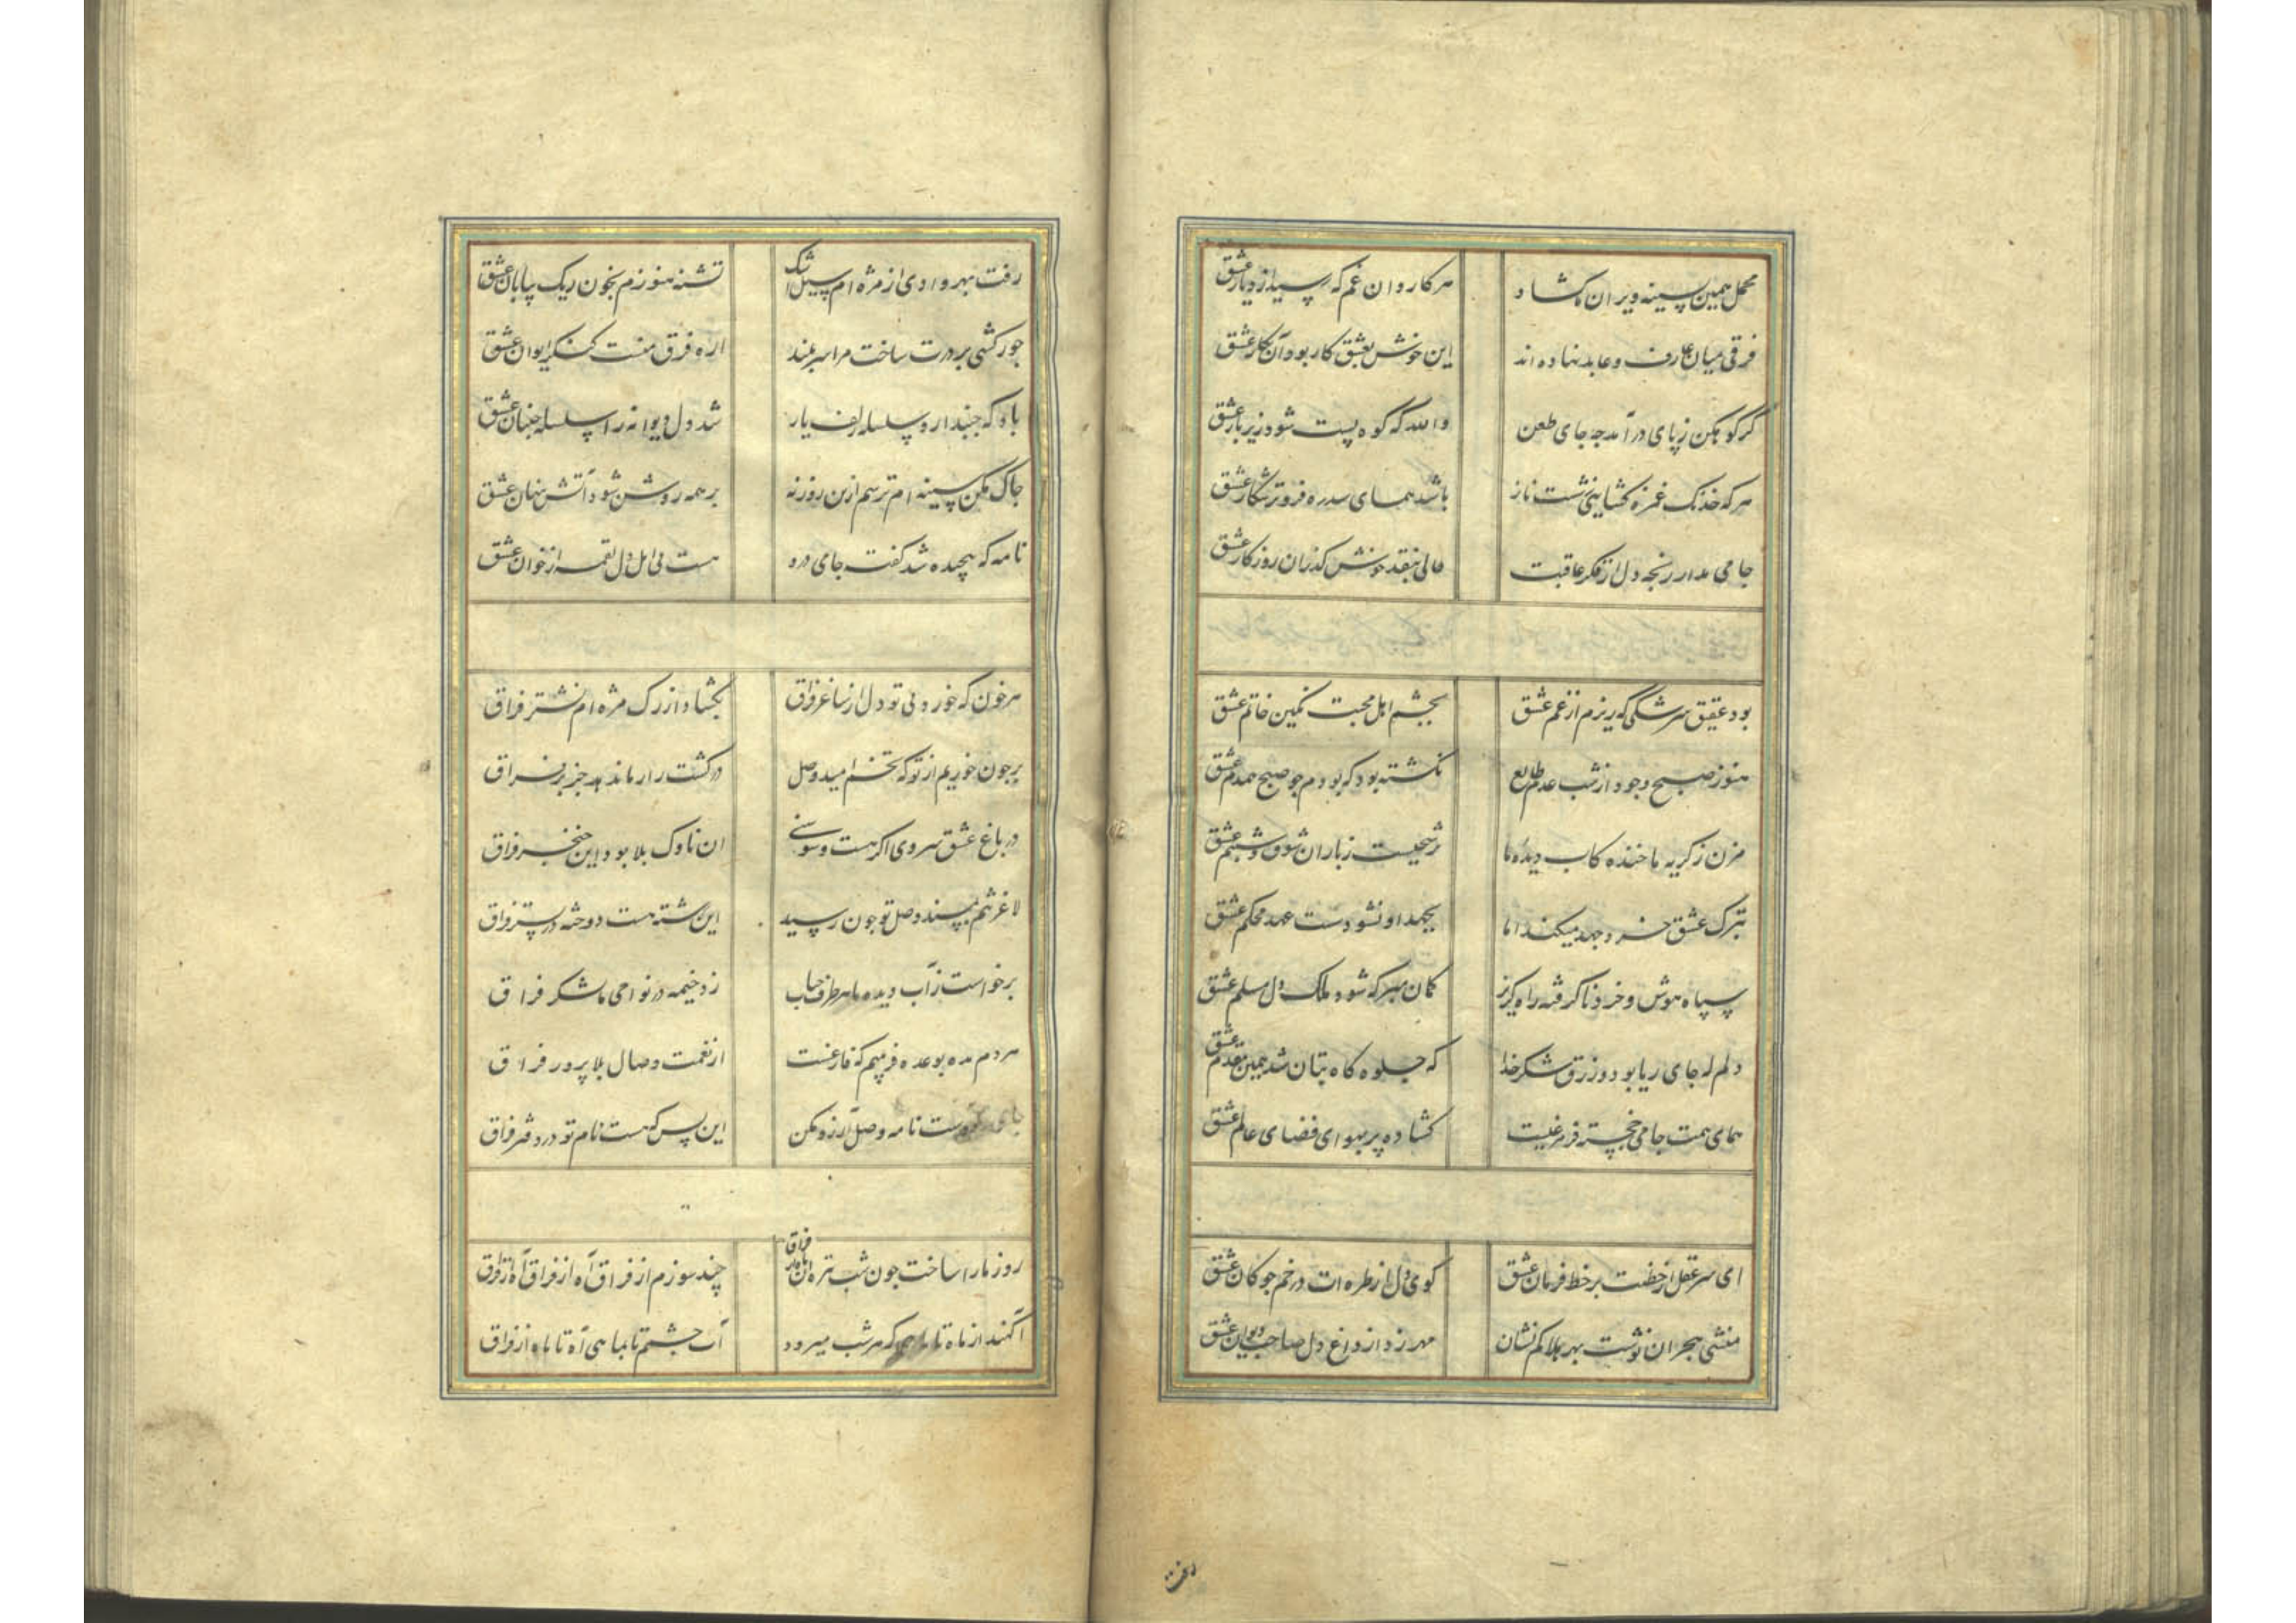 محمل همین بسینه ویران ما کشاد
هر کاروان غم که رسید از دیار عشق
فرقی میان عارف و عابد نهاده اند
این خوش بعشق کار بود آن بکار عشق
گر کوهکن ز پای در آمد چه جای طعن
والله که کوه پست شود زیر بار عشق
هر که خدنک غمزه کشایی ز شست ناز
باشد همای سدره فروتر شکار عشق
جامی مدار رنجه دل از فکر عاقبت
حالی بنقد خوش گذران روزگار عشق
بود عقیق سرشکی که ریزم از غم عشق
بچشم اهل محبت نگین خاتم عشق
هنوز صبح وجود از شب عدم طالع
نکشته بود که بودم چو صبح همدم عشق
مزن ز گریه ما خنده کاب دیده ما
ترشحیست ز باران شوق و شبنم عشق
بترک عشق خرد جهد میکند اما
بجهد او نشود سست عهد محکم عشق
سپاه هوش و خرد نا گرفته راه گریز
گمان مبر که شود ملک دل مسلم عشق
دلم که جای ریا بود و زرق شکر خدا
که جلوه گاه بتان شد بیمن مقدم عشق
همای همت جامی خجسته فر مرغیست
گشاده پر بهوای فضای عالم عشق
ای سر عقل از خطت بر خط فرمان عشق
گوی دل از طره ات در خم چوگان عشق
منشی هجران نوشت بهر بلاکم نشان
مهر زد از داغ دل صاحب دیوان عشق
رفت
رفت بهر وادی از مژه ام سیل اشک
تشنه هنوزم بخون ریک بیابان عشق
جور کشی بر درت ساخت مرا سر بلند
اره فرق منست کنکر ایوان عشق
باد که جنبد ازو سلسله زلف یار
شد دل دیوانه را سلسله جنبان عشق
چاک مکن سینه ام ترسم ازین روزنه
بر همه روشن شود آتش پنهان عشق
نامه که پیچیده شد گفت جای درد
هست پی اهل دل لقمه از خوان عشق
هر خون که خورد بی تو دل از ساغر فراق
بکشاد از رک مژه ام نشتر فراق
بر چون خوریم از تو که تخم امید وصل
در کشت را ر ماند ندهد جز بر فراق
در باغ عشق سروی اگر هست و سوسنی
آن ناوک بلا بود این خنجر فراق
لاغر تنم ببسند وصل تو چون رسید
این رشته هست دوخته در بستر فراق
برخواست ز آب دیده ما هر طرف حباب
زد خیمه در نواحی ما لشکر فراق
هر دم مده بوعده فریبم که فارغست
از نعمت وصال بلا پرور فراق
نامه وصل آرزو مکن
این بس که هست نام تو در دفتر فراق
روز ما را ساخت چون شب تیره آن ماه از فراق
چند سوزم از فراق آه از فراق آه از فراق
افکند از ماه تا ماهی که هر شب میرود
آب چشمم تا بماهی آه تا ماه از فراق